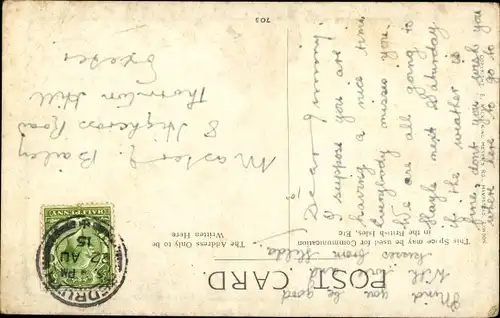 POST CARD.
This Space may be used for Communication
in the British Isles, Etc
The Address Only to be
Written Here.
Mind you be good
With love and
kisses from Hilda.
Dear Jimmy
I suppose you are
having a nice time
everybody misses you.
We are all going to
Hayle next Saturday
if the weather is
fine, dont you wish you
were here to go to
Master J. Bailey
8 Highcross Road
Thornton Hill
Exeter
REDRUTH
PM
AU
15
HALFPENNY
703